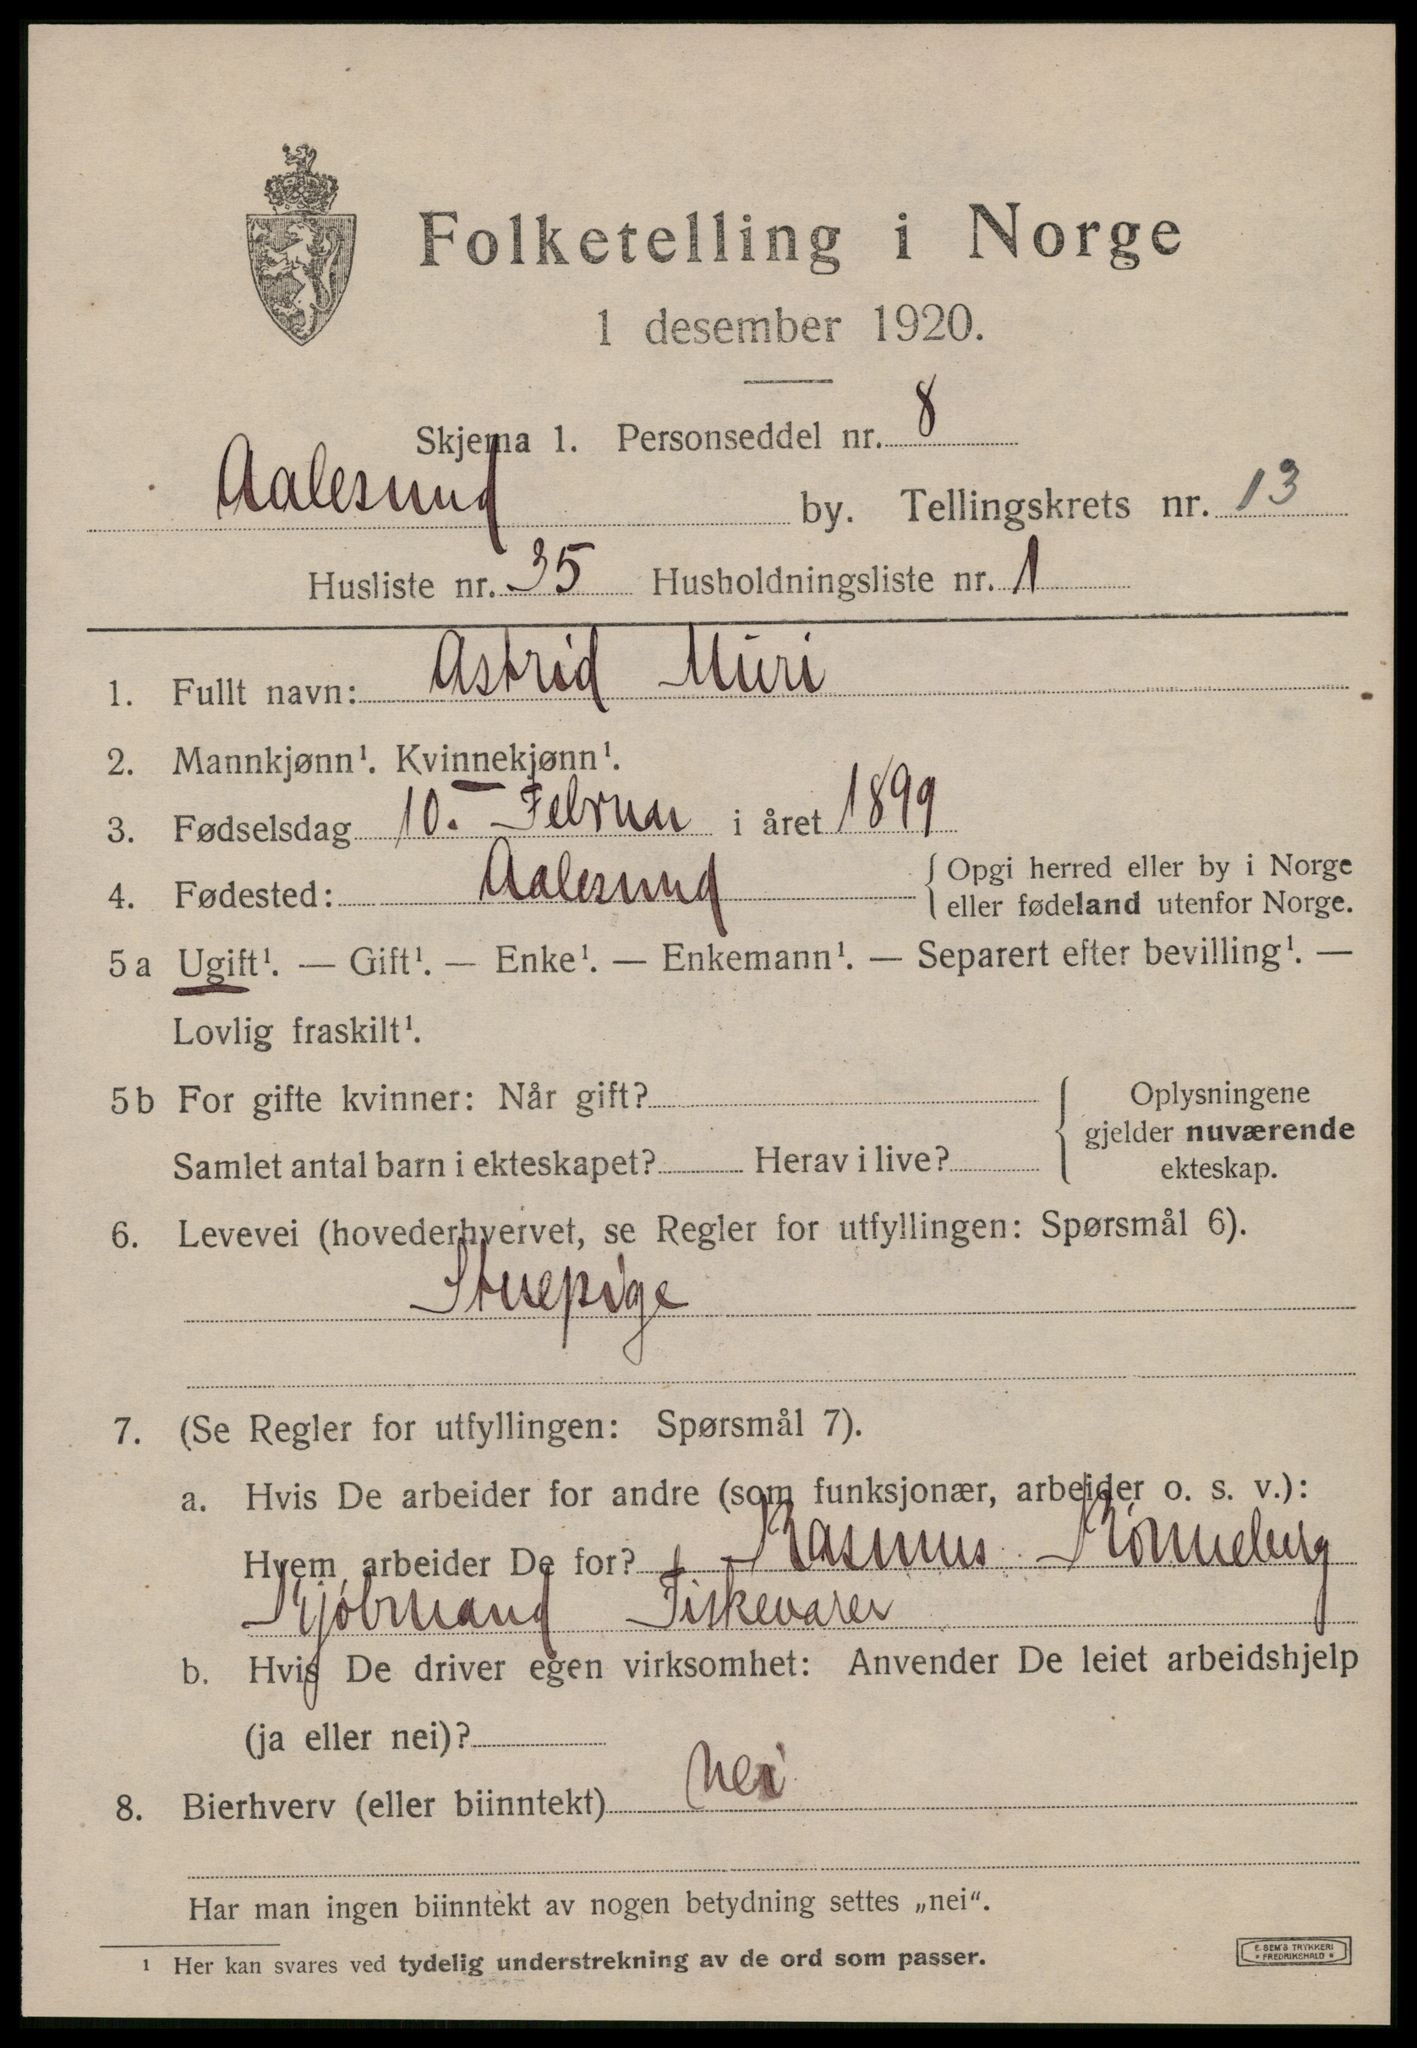 Folketelling i Norge
1 desember 1920.
Skjema 1. Personseddel nr. 8
Aalesund by. Tellingskrets nr. 13
Husliste nr. 35 Husholdningsliste nr. 1
1. Fullt navn: Astrid Muri
2. Mannkjønn¹. Kvinnekjønn¹.
3. Fødselsdag 10. Februar i året 1899
4. Fødested: Aalesund { Opgi herred eller by i Norge
eller fødeland utenfor Norge.
5a Ugift¹. — Gift¹. — Enke¹. — Enkemann¹. — Separert efter bevilling¹. —
Lovlig fraskilt¹.
5b For gifte kvinner: Når gift? { Oplysningene
gjelder nuværende
Samlet antal barn i ekteskapet? Herav i live? ekteskap.
6. Levevei (hovederhvervet, se Regler for utfyllingen: Spørsmål 6).
Stuepige
7. (Se Regler for utfyllingen: Spørsmål 7).
a. Hvis De arbeider for andre (som funksjonær, arbeider o. s. v.):
Hvem arbeider De for? Rasmus Rønneberg
Kjøbmand Fiskevarer
b. Hvis De driver egen virksomhet: Anvender De leiet arbeidshjelp
(ja eller nei)?
8. Bierhverv (eller biinntekt) nei
Har man ingen biinntekt av nogen betydning settes „nei“.
¹ Her kan svares ved tydelig understrekning av de ord som passer.
E. SEM'S TRYKKERI
* FREDRIKSHALD *